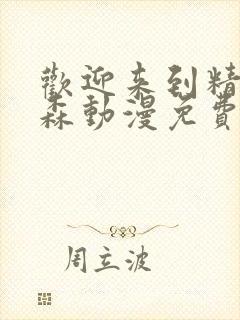 歡迎来到精
森動漫免費
周立波